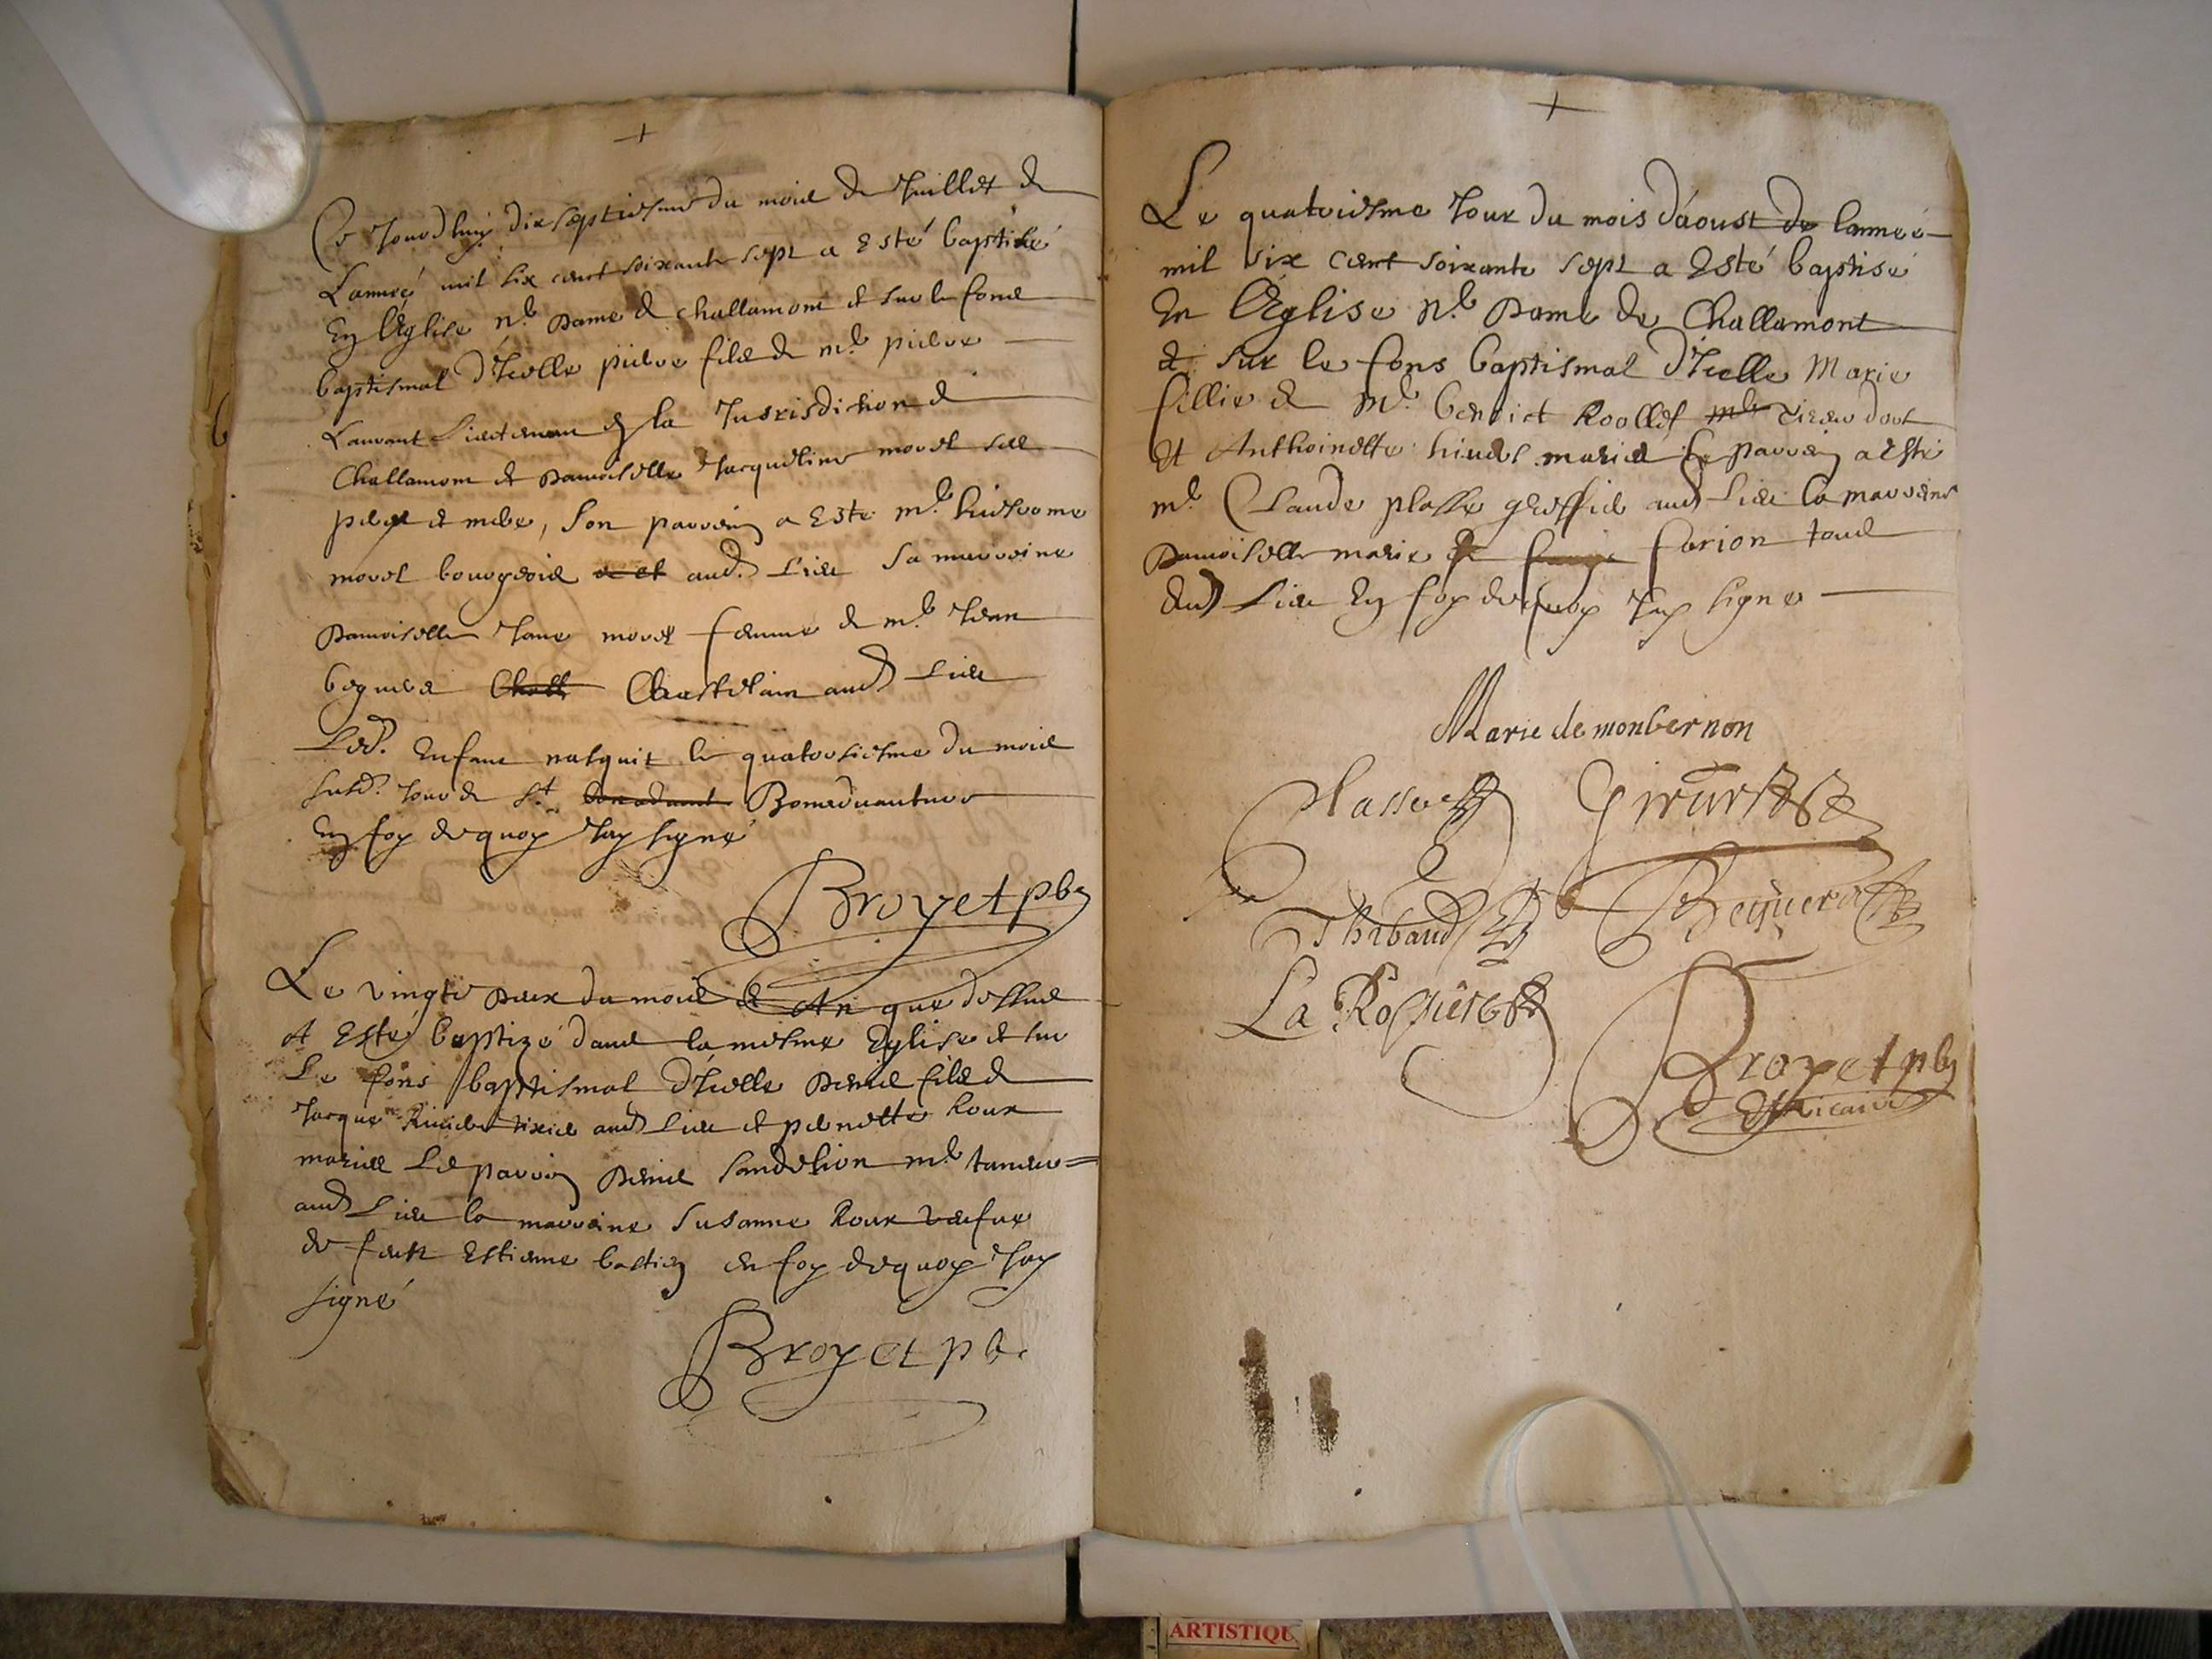 +
Ce Jourdhuy dix septiesme du mois de Juillet de
Lanneé mil six cent soixante sept a Esté baptisé
En l'Eglise nre Dame de challamont et sur le fons
baptismal d'Icelle pierre fils de mre pierre
Laurant Lieutenan en la Jusrisdition de
Challamont et Damoiselle Jacqueline morel ses
pere et mere, son parrein a Esté mre hierosme
morel bourgeois aud. Lieu sa marreine
Damoiselle Jane morel femme de mre Jean
bequerel Chastelain aud Lieu
Led. Enfant nasquit le quatorsiesme du mois
susd. Jour de St Bonaduanture
En foy dequoy Jay signé
Broyet pbr
Le vingte deux du mois et An que dessus
A Esté baptizé dans la mesme Eglise et sur
Le fons baptismal d'Icelle Denis fils de
Jacque tixier aud Lieu et pernette Roux
mariés Le parrein Denis mre
aud Lieu la marreine Susanne Roux vefue
de feuz Estienne bastien en foy dequoy Jay
signé
Broyet pbr
+
Le quatriesme Jour du mois d'aoust de lanneé
mil six cent soixante sept a Esté baptisé
En l'Eglise nre Dame de Challamont
et sur le fons baptismal d'Icelle Marie
fillie de Mre benoict Roollet
et Anthoinette mariés le parrein a Esté
mre Claude plasse greffier aud Lieu la marreine
Damoiselle marie farion tous
dud Lieu En foy dequoy Jay signe
Marie de monbernon
Plasse Girard
Thibaud Bequerel
La Rosiere
Broyet pbr
Et vicaire
ARTISTIQU